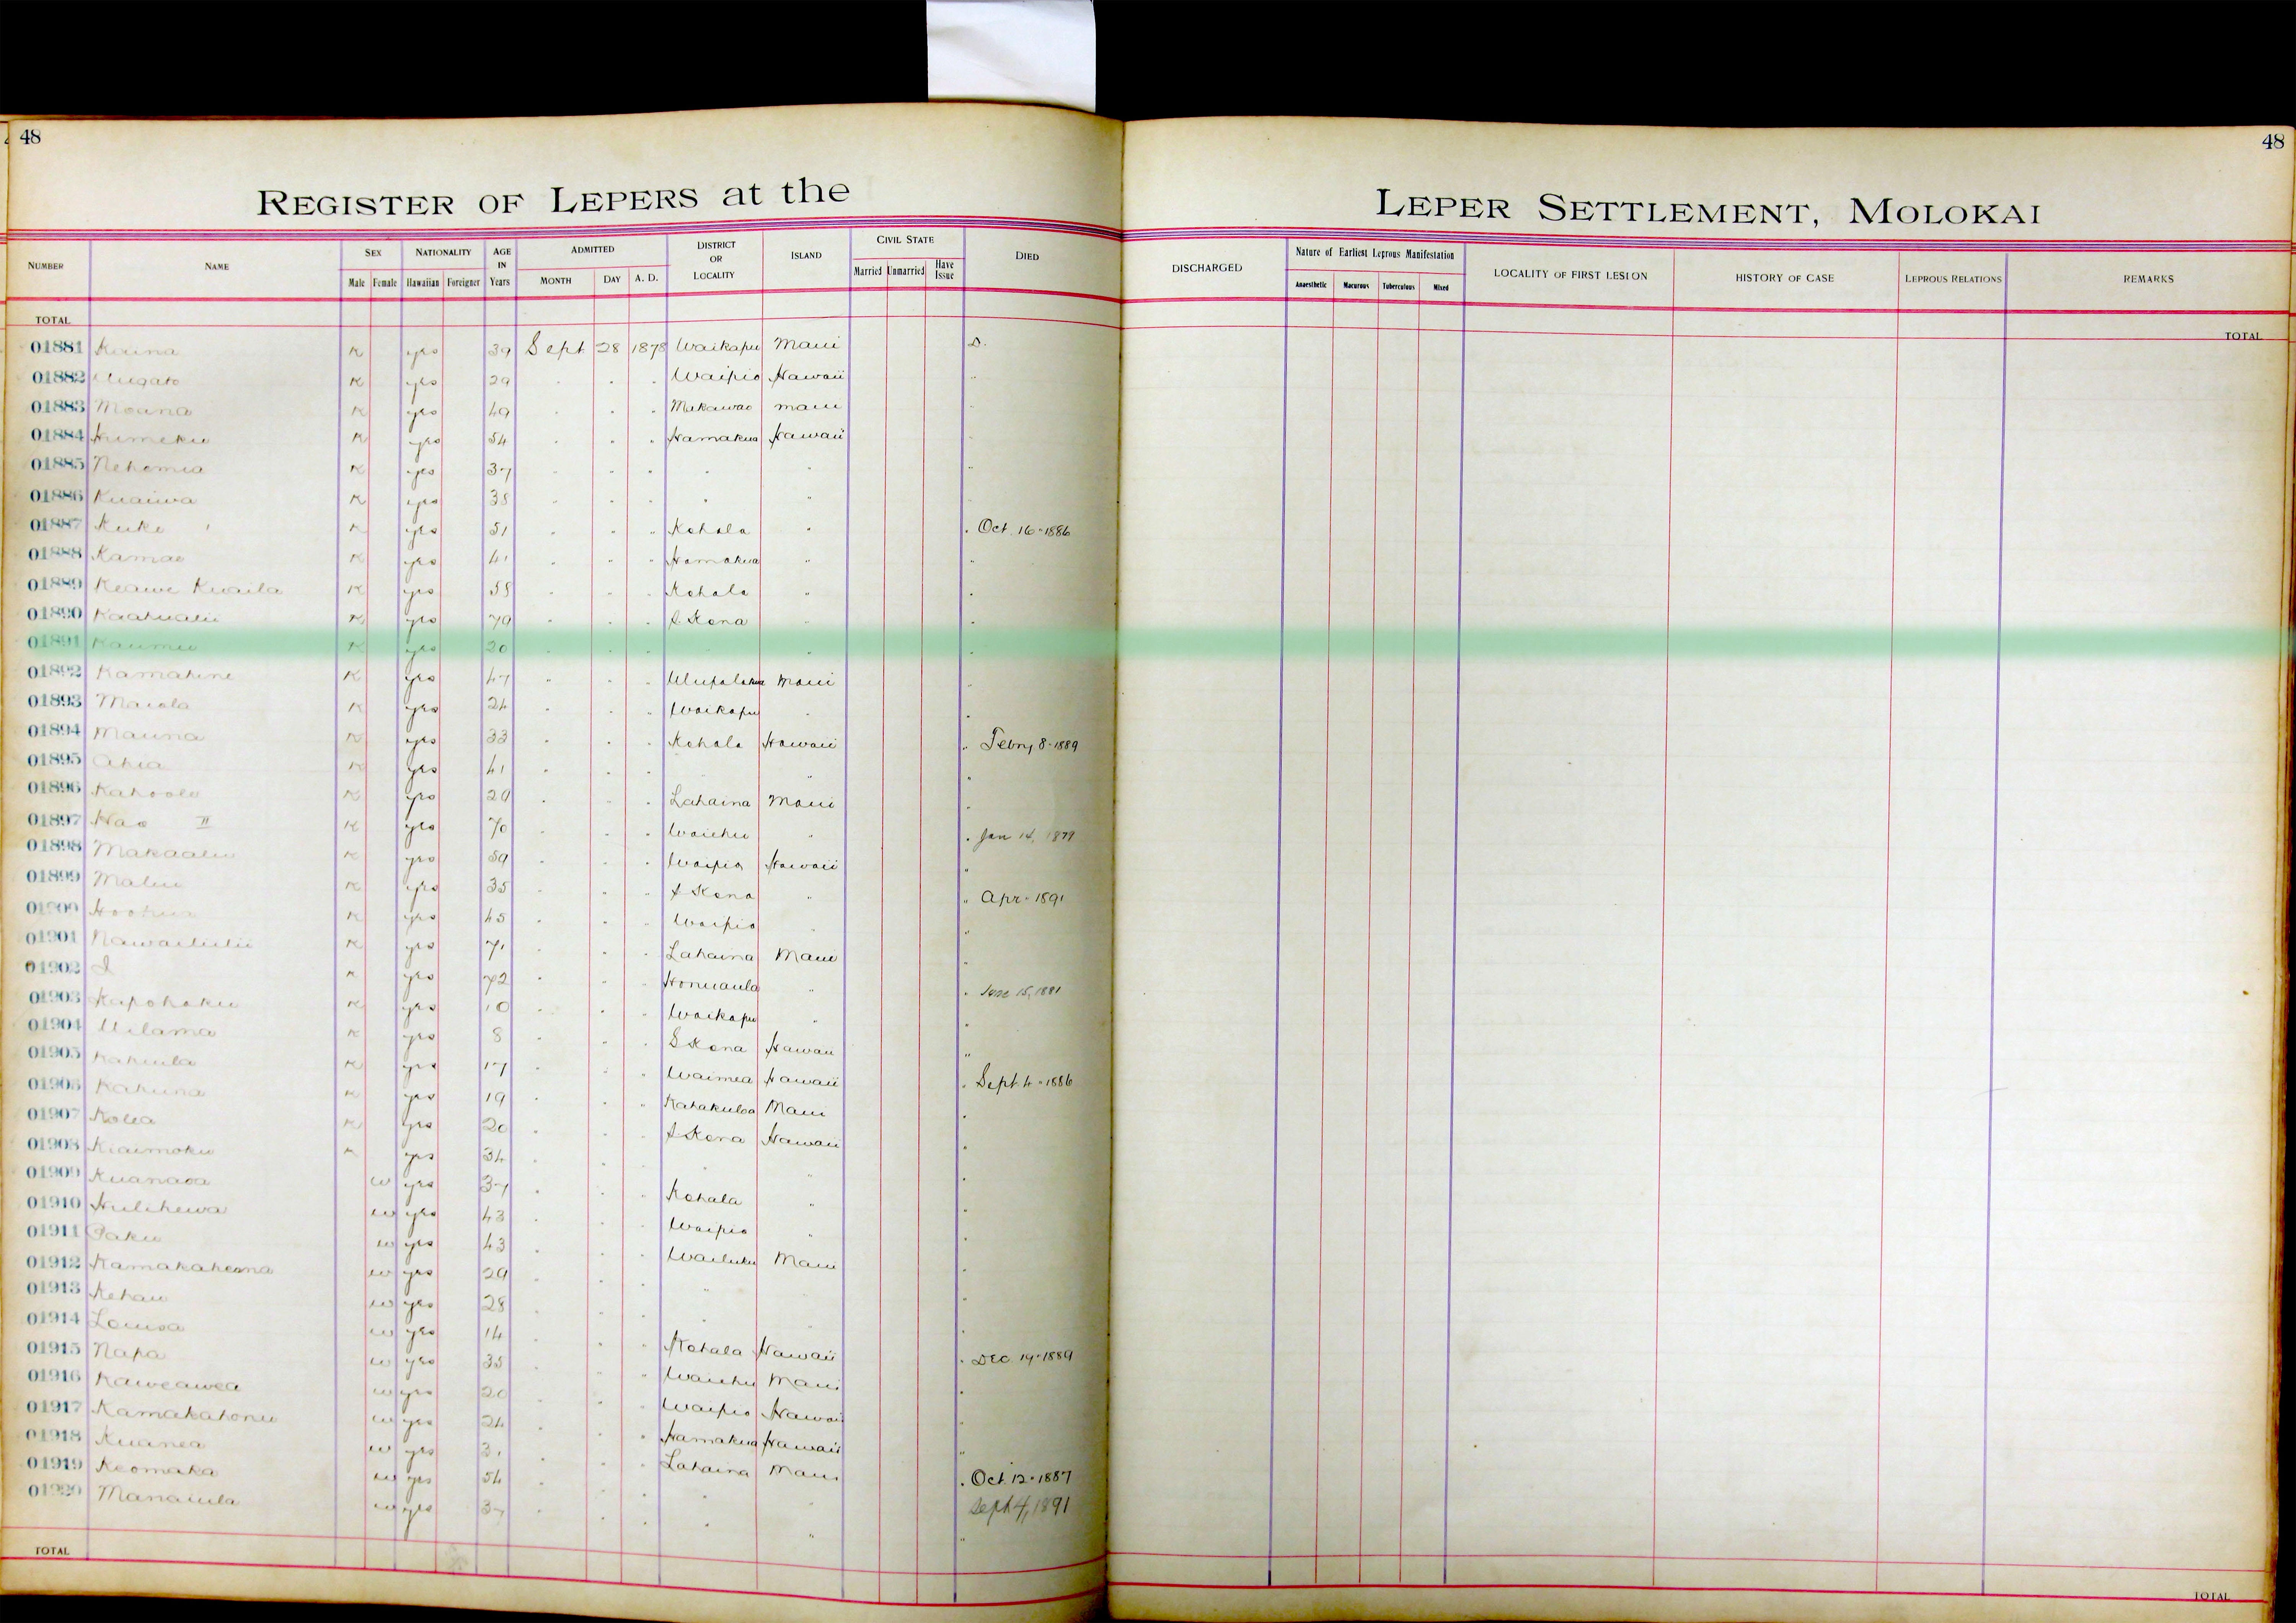 48
48
REGISTER OF LEPERS at the
LEPER SETTLEMENT, MOLOKAI
NUMBER NAME SEX NATIONALITY AGE IN Years ADMITTED DISTRICT OR LOCALITY ISLAND CIVIL STATE DIED DISCHARGED Nature of Earliest Leprous Manifestation LOCALITY OF FIRST LESION HISTORY OF CASE LEPROUS RELATIONS REMARKS
Male Female Hawaiian Foreigner MONTH DAY A. D. Married Unmarried Have Issue Anaesthetic Macurous Tuberculous Mixed
TOTAL
TOTAL
01881 K yes 39 Sept 28 1878 Waikapu Maui D.
01882 K yes 29 " " " Waipio Hawaii "
01883 Moana K yes 49 " " " Makawao maui "
01884 Humeku K yes 54 " " " Hamakua Hawaii "
01885 Nehemia K yes 37 " " " " " "
01886 Kuaiwa K yes 38 " " " " " "
01887 Kuke K yes 51 " " " Kohala " " Oct. 16 - 1886
01888 Kamae K yes 41 " " " Hamakua " "
01889 Keawe Kuaila K yes 58 " " " Kohala " "
01890 Kaahualii K yes 79 " " " Kona " "
01891 Kaumu K yes 20 " " " " " "
01892 Kamahine K yes 47 " " " Ulupalakua Maui "
01893 Maiola K yes 24 " " " Waikapu " "
01894 Mauna K yes 33 " " " Kohala Hawaii " Febry 8 - 1889
01895 Ahia K yes 41 " " " " "
01896 Kahoole K yes 29 " " " Lahaina Maui "
01897 Hao II K yes 70 " " " Waiehu " " Jan 14, 1879
01898 Makaalu K yes 59 " " " Waipio Hawaii "
01899 Malui K yes 35 " " " Kona " " Apr - 1891
01900 Hoohua K yes 45 " " " Waipio "
01901 Nawailiilii K yes 71 " " " Lahaina Maui "
01902 I K yes 72 " " " Honuaula " " June 15, 1881
01903 Kapohaku K yes 10 " " " Waikapu " "
01904 Uilama K yes 8 " " " S Kona Hawaii "
01905 Kahiula K yes 17 " " " Waimea Hawaii " Sept. 4 - 1886
01906 Kahuna K yes 19 " " " Kahakuloa Maui "
01907 Kolea K yes 20 " " " Kona Hawaii "
01908 Kiaimoku K yes 34 " " " " "
01909 Kuanaoa w yes 37 " " " Kohala " "
01910 Hulihewa w yes 43 " " " Waipio " "
01911 Paku w yes 43 " " " Wailuku Maui "
01912 Kamakaheana w yes 29 " " " " "
01913 Kehau w yes 28 " " " " "
01914 Louisa w yes 14 " " " Kohala Hawaii " Dec. 19 - 1889
01915 Napa w yes 35 " " " Waiehu Maui "
01916 Kaweawea w yes 20 " " " Waipio Hawaii "
01917 Kamakahonu w yes 24 " " " Hamakua Hawaii "
01918 Kuanea w yes 31 " " " Lahaina Maui " Oct 12 - 1887
01919 Keomaka w yes 54 " " " " " Sept 4, 1891
01920 Manaiula w yes 37 " " " " " "
TOTAL
TOTAL